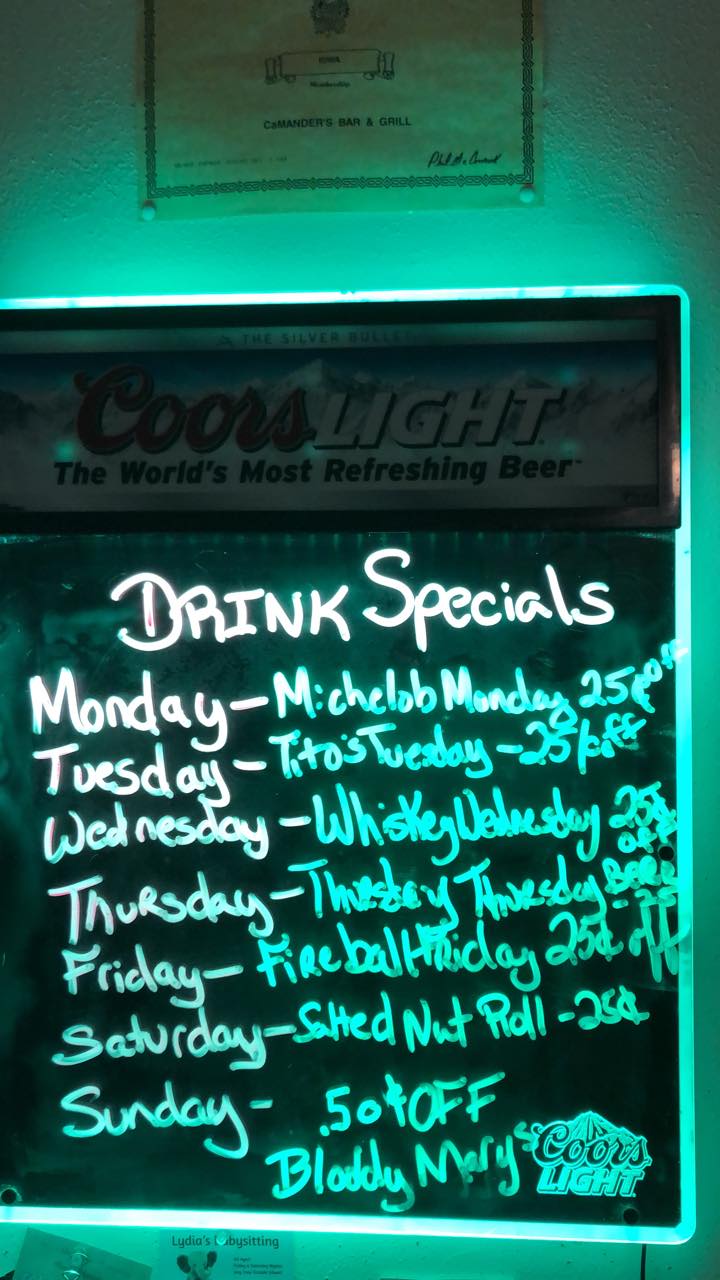 IOWA
Membership
CaMANDER'S BAR & GRILL
THE SILVER BULLET
Coors LIGHT
The World's Most Refreshing Beer
DRINK Specials
Monday - Michelob Monday 25¢ off
Tuesday - Tito's Tuesday - 25¢ off
Wednesday - Whiskey Wednesday 25¢ off
Thursday - Thursday Beer - 25
Friday - Fireball Friday 25¢ off
Saturday - Salted Nut Roll - 25¢
Sunday - .50¢ OFF
Bloddy Mary's
Coors
LIGHT
Lydia's Babysitting